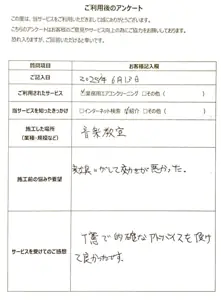 ご利用後のアンケート
この度は、当サービスをご利用いただきまして誠にありがとうございます。
こちらのアンケートはお客様のご意見やサービス向上の為にご協力をお願いしております。
恐れ入りますが、ご回答いただけると幸いです。
質問項目 お客様記入欄
ご記入日 2025年6月13日
ご利用されたサービス ☑業務用エアコンクリーニング □その他( )
当サービスを知ったきっかけ □インターネット検索 ☑紹介 □その他( )
施工した場所
(業種・規模など)
音楽教室
施工前の悩みや要望
して効きが悪かった。
サービスを受けてのご感想
丁寧で的確なアドバイスを頂け
て良かったです。